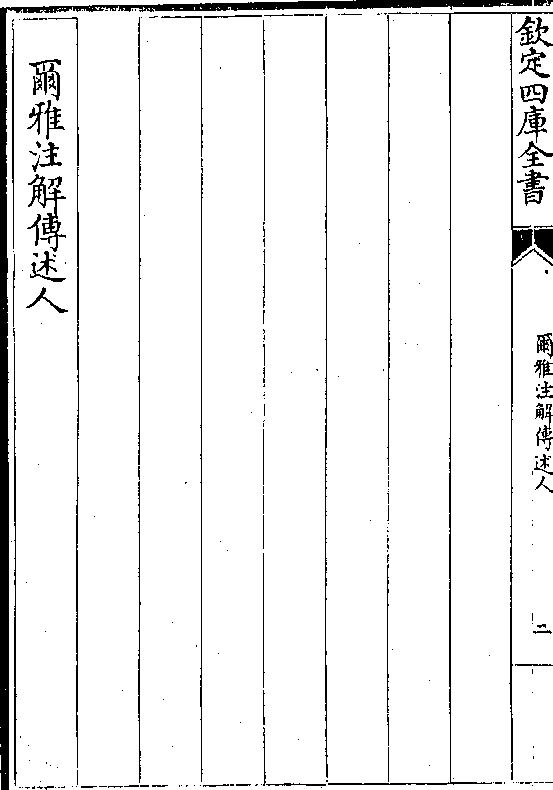 欽定四庫全書
爾雅注解傳述人
二
爾雅注解傳述人